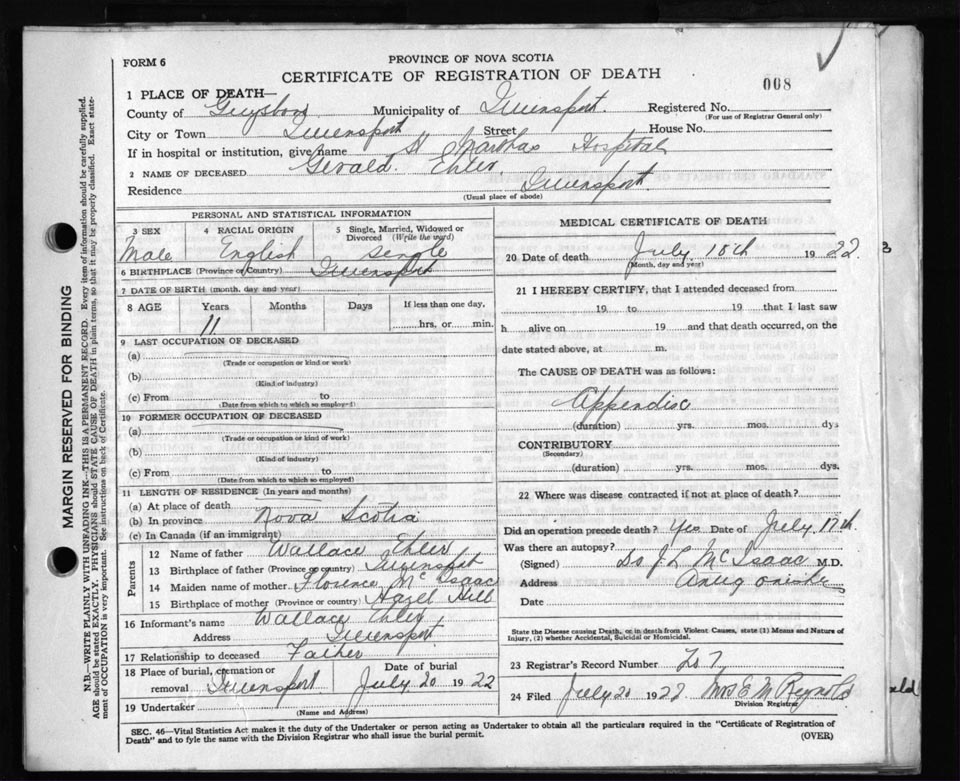 FORM 6
PROVINCE OF NOVA SCOTIA
CERTIFICATE OF REGISTRATION OF DEATH
008
1 PLACE OF DEATH—
County of Guysboro Municipality of Queensport. Registered No.
(For use of Registrar General only)
City or Town Queensport Street House No.
If in hospital or institution, give name St Marthas Hospital
2 NAME OF DECEASED Gerald. Ehler.
Residence Queensport.
(Usual place of abode)
PERSONAL AND STATISTICAL INFORMATION
3 SEX Male
4 RACIAL ORIGIN English
5 Single, Married, Widowed or Divorced (Write the word) single
6 BIRTHPLACE (Province or Country) Queensport
7 DATE OF BIRTH (month, day and year)
8 AGE Years Months Days If less than one day,
11 hrs, or min.
9 LAST OCCUPATION OF DECEASED
(a)
(Trade or occupation or kind or work)
(b)
(Kind of industry)
(c) From to
(Date from which to which so employed)
10 FORMER OCCUPATION OF DECEASED
(a)
(Trade or occupation or kind of work)
(b)
(Kind of industry)
(c) From to
(Date from which to which so employed)
11 LENGTH OF RESIDENCE (In years and months)
(a) At place of death
(b) In province Nova Scotia
(c) In Canada (if an immigrant)
Parents
12 Name of father Wallace Ehler
13 Birthplace of father (Province or country) Queensport
14 Maiden name of mother Florence McIsaac
15 Birthplace of mother (Province or country) Hazel Hill
16 Informant's name Wallace Ehler
Address Queensport
17 Relationship to deceased Father
18 Place of burial, cremation or removal Queensport Date of burial July 20 1922
19 Undertaker
(Name and Address)
MEDICAL CERTIFICATE OF DEATH
20 Date of death July 18th 1922.
(Month, day and year)
21 I HEREBY CERTIFY, that I attended deceased from
19 to 19 that I last saw
h alive on 19 and that death occurred, on the
date stated above, at m.
The CAUSE OF DEATH was as follows:
Appendisc
(duration) yrs. mos. dys
CONTRIBUTORY
(Secondary)
(duration) yrs. mos. dys.
22 Where was disease contracted if not at place of death?
Did an operation precede death? Yes Date of July 17th.
Was there an autopsy?
(Signed) Dr J L McIsaac M.D.
Address
Date
State the Disease causing Death, or in death from Violent Causes, state (1) Means and Nature of
Injury, (2) whether Accidental, Suicidal or Homicidal.
23 Registrar's Record Number
24 Filed July 20 1922 Mrs E M Reynolds
Division Registrar
SEC. 46—Vital Statistics Act makes it the duty of the Undertaker or person acting as Undertaker to obtain all the particulars required in the "Certificate of Registration of
Death" and to fyle the same with the Division Registrar who shall issue the burial permit.
(OVER)
MARGIN RESERVED FOR BINDING
N.B.—WRITE PLAINLY WITH UNFADING INK—THIS IS A PERMANENT RECORD. Every item of information should be carefully supplied.
AGE should be stated EXACTLY. PHYSICIANS should STATE CAUSE OF DEATH in plain terms, so that it may be properly classified. Exact state-
ment of OCCUPATION is very important. See instructions on back of Certificate.
3